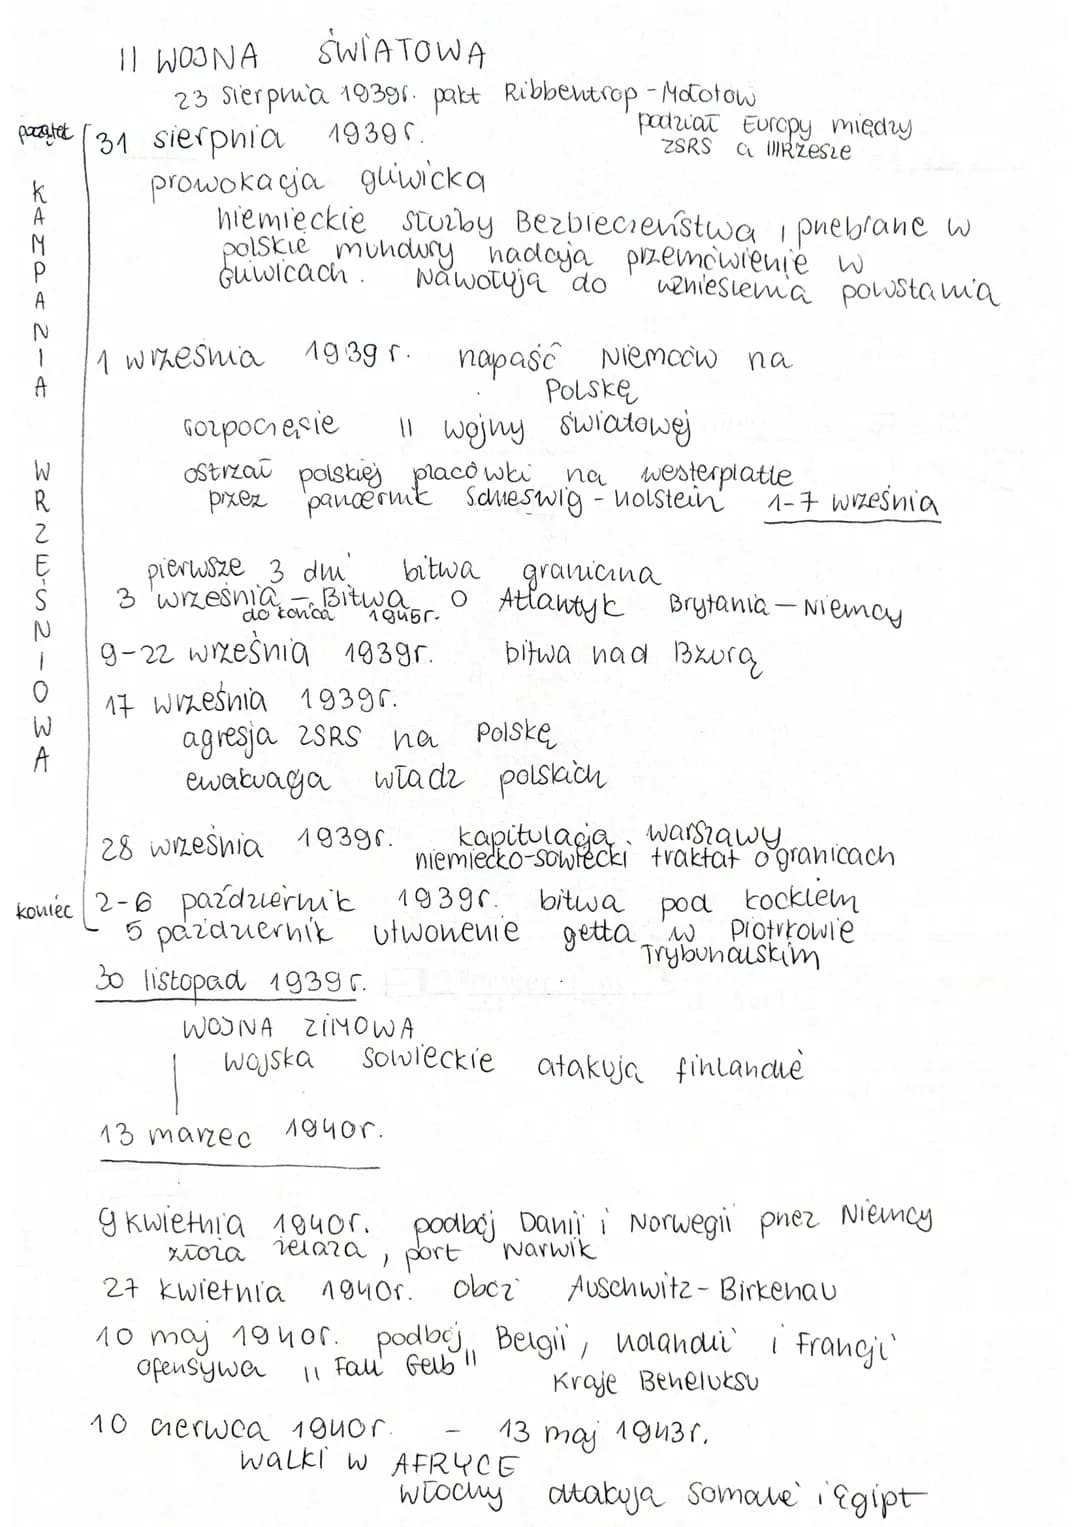 II WOJNA ŚWIATOWA
23 sierpnia 1939r. pakt Ribbentrop-Mołotow
podział Europy między
ZSRS a III Rzesze
początek
31 sierpnia 1939r.
prowokacja gliwicka
niemieckie służby Bezbieczeństwa, przebrane w
polskie mundury nadają przemówienie w
Gliwicach. Nawołują do wzniesienia powstania
KAMPANIA WRZEŚNIOWA
1 września 1939r. napaść Niemców na
Polskę
rozpoczęcie II wojny światowej
ostrzał polskiej placówki na westerplatte
przez pancernik Schleswig-Holstein 1-7 września
pierwsze 3 dni bitwa graniczna
3 września - Bitwa o Atlantyk Brytania-Niemcy
do końca 1945r.
9-22 września 1939r. bitwa nad Bzurą
17 września 1939r.
agresja ZSRS na Polskę
ewakuacja władz polskich
28 września 1939r. kapitulacja warszawy
niemiecko-sowiecki traktat o granicach
koniec
2-6 październik 1939r. bitwa pod kockiem
5 październik utworzenie getta w Piotrkowie
Trybunalskim
30 listopad 1939r.
WOJNA ZIMOWA
wojska sowieckie atakują finlandię
13 marzec 1940r.
9 kwietnia 1940r. podbój Danii i Norwegii przez Niemcy
złoża żelaza, port Narwik
27 kwietnia 1940r. obóz Auschwitz-Birkenau
10 maj 1940r. podbój Belgii, Holandii i Francji
ofensywa "Fall Gelb"
Kraje Beneluksu
10 czerwca 1940r. - 13 maj 1943r.
walki w AFRYCE
włochy atakują Somalię i Egipt